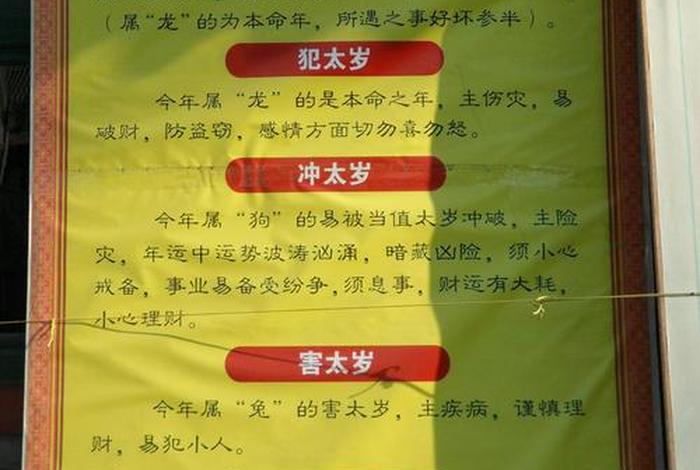 （属“龙”的为本命年，所遇之事好坏参半）。
犯太岁
今年属“龙”的是本命之年，主伤灾，易
破财，防盗窃，感情方面切勿喜勿怒。
冲太岁
今年属“狗”的易被当值太岁冲破，主险
灾，年运中运势波涛汹涌，暗藏凶险，须小心
戒备，事业易备受纷争，须息事，财运有大耗，
小心理财。
害太岁
今年属“兔”的害太岁，主疾病，谨慎理
财，易犯小人。